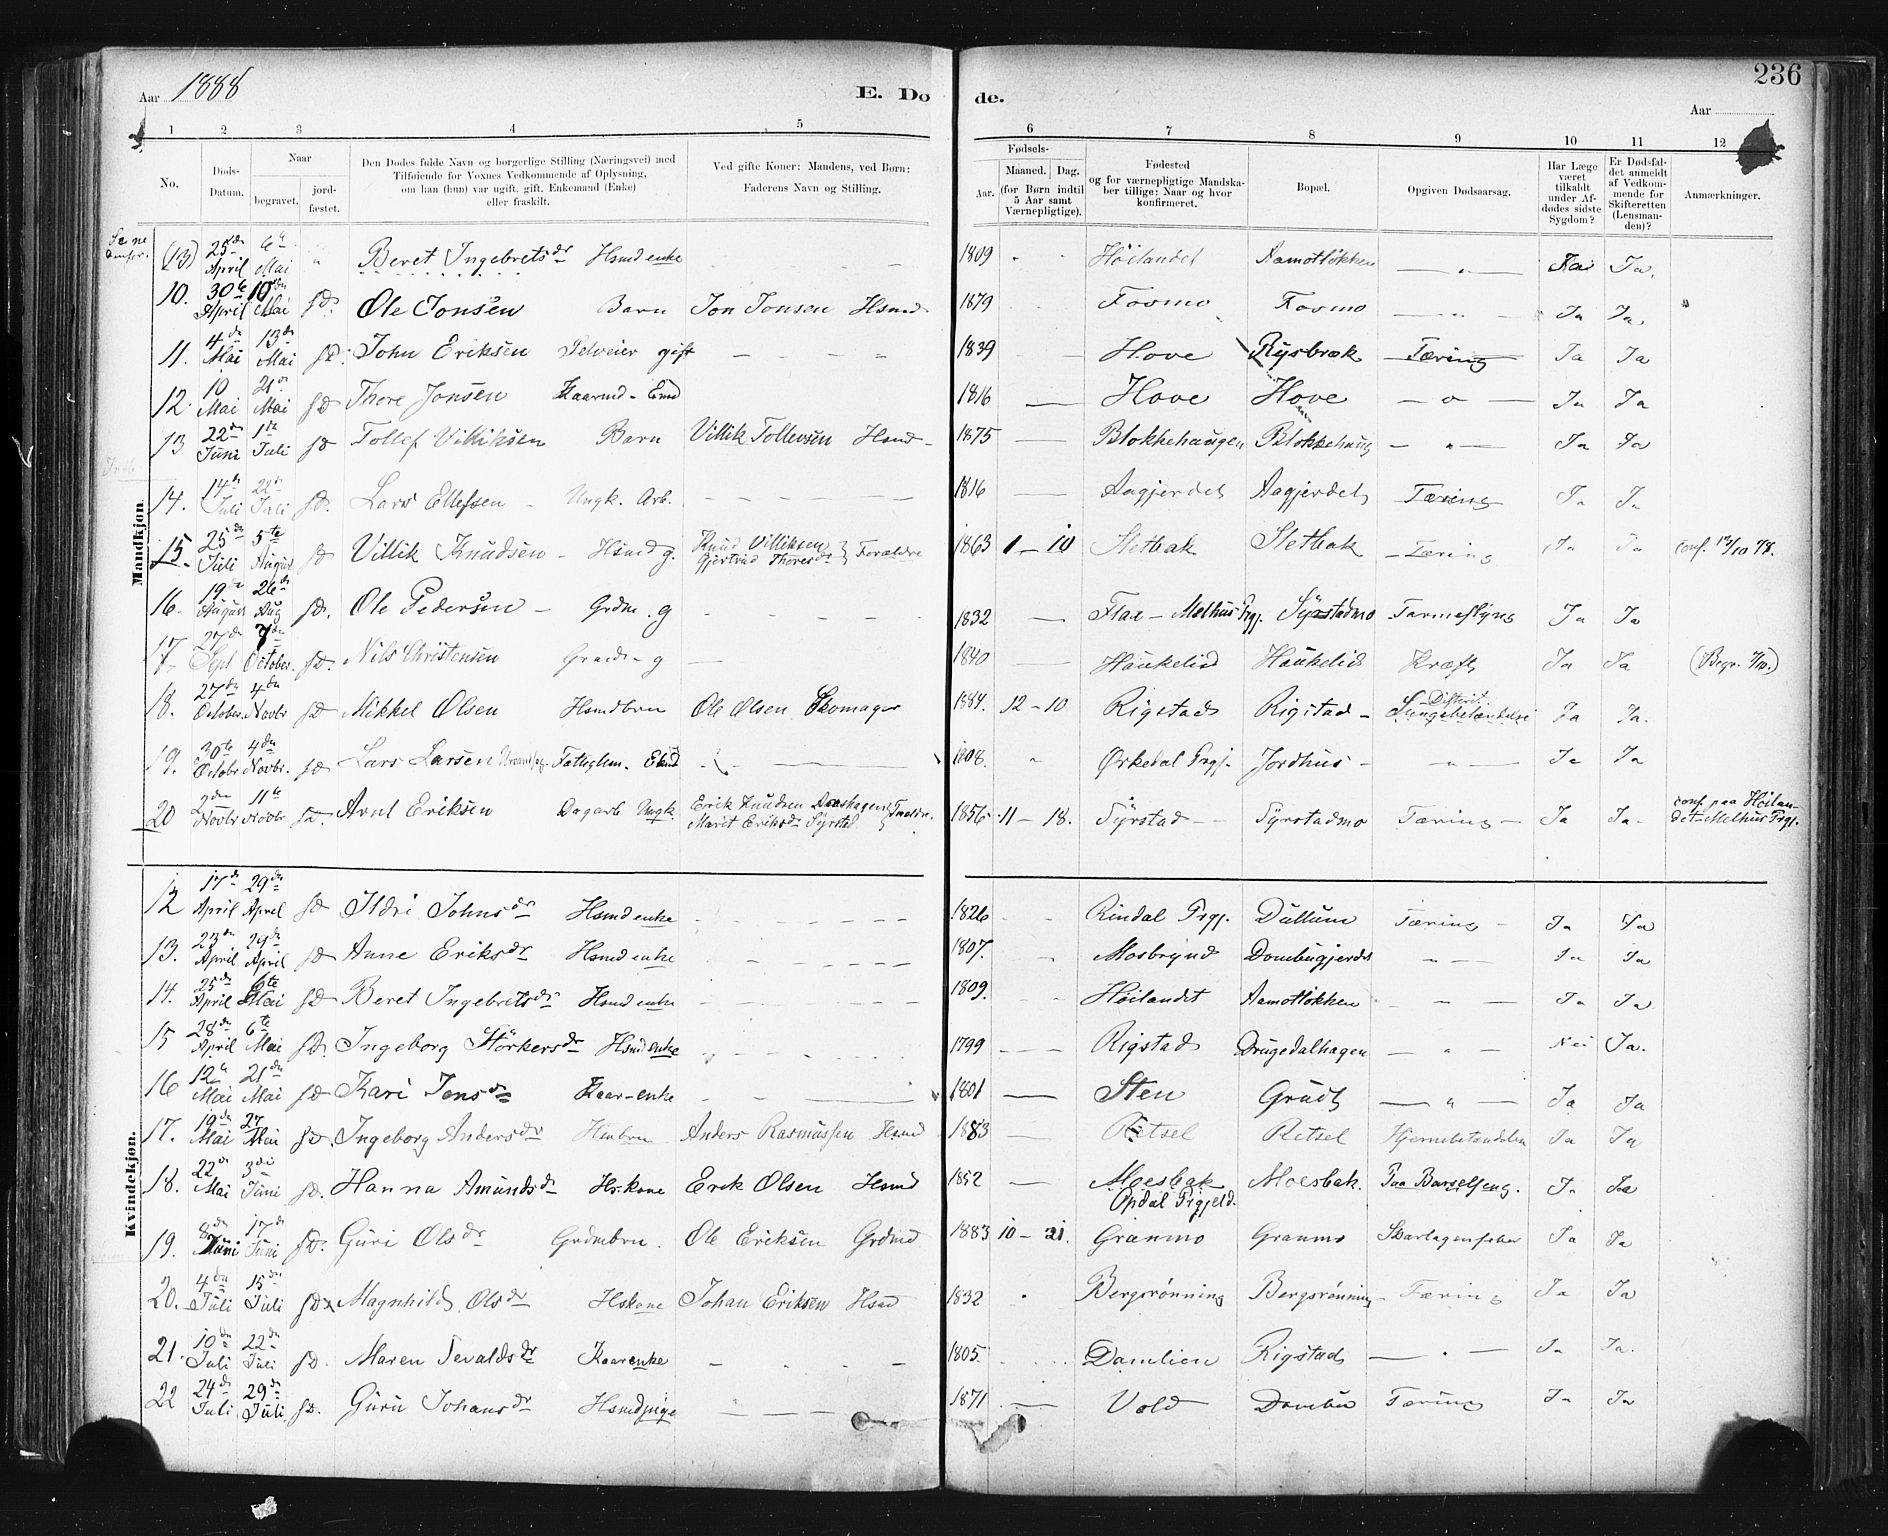 236
Aar 1888
E. Dø de.
Aar
1 2 3 4 5 6 7 8 9 10 11 12
No. Døds-Datum. Naar begravet. jord-fæstet. Den Dødes fulde Navn og borgerlige Stilling (Næringsvei) med Tilføiende for Voxnes Vedkommende af Oplysning, om han (hun) var ugift, gift, Enkemand (Enke) eller fraskilt. Ved gifte Koner: Mandens, ved Børn: Faderens Navn og Stilling. Fødsels- Aar. Maaned. Dag. (for Børn indtil 5 Aar samt Værnepligtige). Fødested og for værnepligtige Mandskaber tillige: Naar og hvor konfirmeret. Bopæl. Opgiven Dødsaarsag. Har Læge været tilkaldt under Afdødes sidste Sygdom? Er Dødsfaldet anmeldt af Vedkommende for Skifteretten (Lensmanden)? Anmærkninger.
Mandkjøn
(13) 25de April 6te Mai Beret Ingebretsdr Hsmdenke 1809 Høilandet Aamotløkken Ja Ja
10. 30te April 10de Mai Ole Jonsen Barn Jon Jonsen Hsmd 1879 Fosmo Fosmo Ja Ja
11. 4de Mai 13de Mai John Eriksen Selveier gift 1839 Hove Rysbræk Tæring Ja Ja
12. 10 Mai 21de Mai Thore Jonsen Kaarmd - Emd 1816 Hove Hove Ja Ja
13 22de Juni 1ste Juli Tollef Villiksen Barn Villik Tollevsen Hsmd 1875 Blokkehaugen Blokkehaug Ja Ja
14. 14de Juli 22de Juli Lars Ellefsen Ungk. Arb. 1816 Aagjerdet Aagjerdet Tæring Ja Ja
15. 25de Juli 5te August Villik Knudsen Hsmd g. Knud Villiksen Gjertrud Thoresdr Forældre 1863 1 - 10 Sletbak Sletbak Tæring Ja Ja conf. 13/10 78.
16. 19de August 26de Aug Ole Pedersen Grdm. g 1832 Flaa - Melhus Prgj. Syrstadmo Tarmeslyng Ja Ja
17. 27de Sept 7de October. Nils Christensen Grmd - g 1840 Haukelid Haukelid Kræft Ja Ja (Begr. 7/10.)
18. 27de October. 4de Novbr Mikkel Olsen Hsmdbrn Ole Olsen Skomager 1884. 12 - 10 Rigstad Rigstad Difterit. Lungebetændelse Ja Ja.
19. 30te Octobr 4de Novbr. Lars Larsen Fattiglem. Ekmd 1808. Ørkedal Prgj. Jordhus Ja Ja
20 2den Novbr 11te Novbr Arnt Eriksen Dagarb Ungk. Erik Knudsen Marit Eriksdr Syrstad 1856. 11 - 18. Syrstad Syrstadmo Tæring Ja Ja conf. paa Høilandet - Melhus Prgj.
Kvindekjøn.
12 17de April 29de April Ildri Johnsdr Hsmdenke 1826 Rindal Prgj. Dullum Tæring Ja Ja
13. 23de April 29de April Anne Eriksdr Hsmdenke 1807. Mosbrynd Dombugjerdet Ja Ja
14. 25de April 6te Mai Beret Ingebretsdr Hsmdenke 1809. Høilandet Aamotløkken Ja Ja
15 28de April 6te Mai Ingeborg Størkersdr Hsmdenke 1799 Rigstad Drugedalhagen Nei Ja.
16 12te Mai 21de Mai Kari Jensdr Kaar-enke 1801 Sten Grudt Ja Ja
17. 19de Mai 27 Mai Ingeborg Andersdr Hsmbrn Anders Rasmussen Hsmd 1883 Retsel Retsel Hjernebetændelse Ja Ja
18. 22de Mai 3die Juni Hanna Amundsdr Hs.kone Erik Olsen Hsmd 1852 Moesbak Opdal Prgjeld. Moesbak. Paa Barselseng. Ja Ja
19. 8de Juni 17de Juni Guri Olsdr Grdmbrn. Ole Eriksen Grdmd 1883 10 - 21. Granmo Granmo Skarlagensfeber Ja Ja
20. 4de Juli 15de Juli Magnhild Olsdr Hskone Johan Eriksen Hsmd 1832 Bergsrønning Bergsrønning Tæring Ja Ja
21. 10de Juli 22de Juli Maren Sevaldsdr Kaarenke 1805. Damlien Rigstad Ja Ja.
22 24de Juli 29de Juli Guru Johansdr Hsmdpige 1871 Vold Dombu Tæring Ja Ja